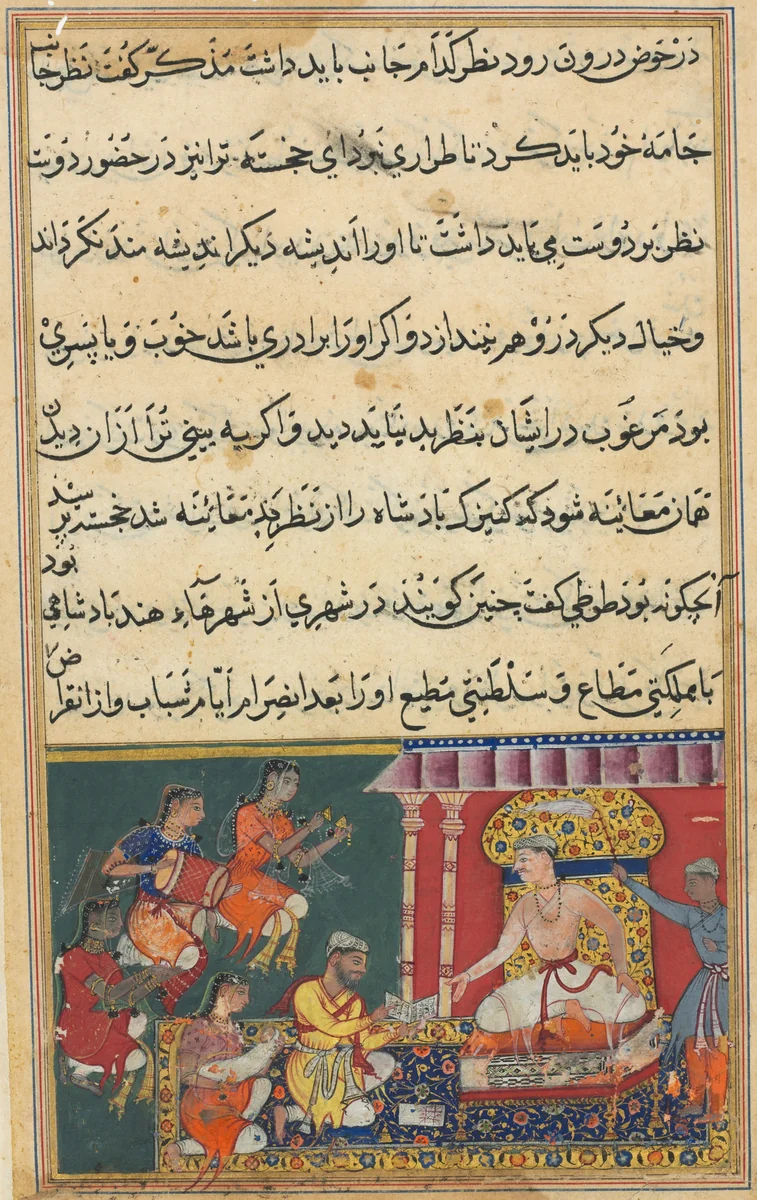 در حوض درون رود نظر کدام جانب باید داشت مذکر گفت نظر جانب
جامهٔ خود باید کرد تا طراری نبرد ای خجسته ترا نیز در حضور دوست
نظر بر دوست می باید داشت تا او را اندیشه دیگر اندیشه مند نگرداند
و خیال دیگر در وهم نیندازد و اگر او را برادری باشد خوب و یا پسری
بود مرغوب در ایشان بنظر بد نیاید دید و اگر به بینی ترا از آن دیدن
همان معائینه شود که کنیزک بادشاه را از نظر بد معائنه شد خجسته پرسید
آنچگونه بود طوطی گفت چنین گویند در شهری از شهرهاء هند بادشاهی بود
با مملکتی مطاع و سلطنتی مطیع او را بعد انصرام ایام شباب و از انقراض